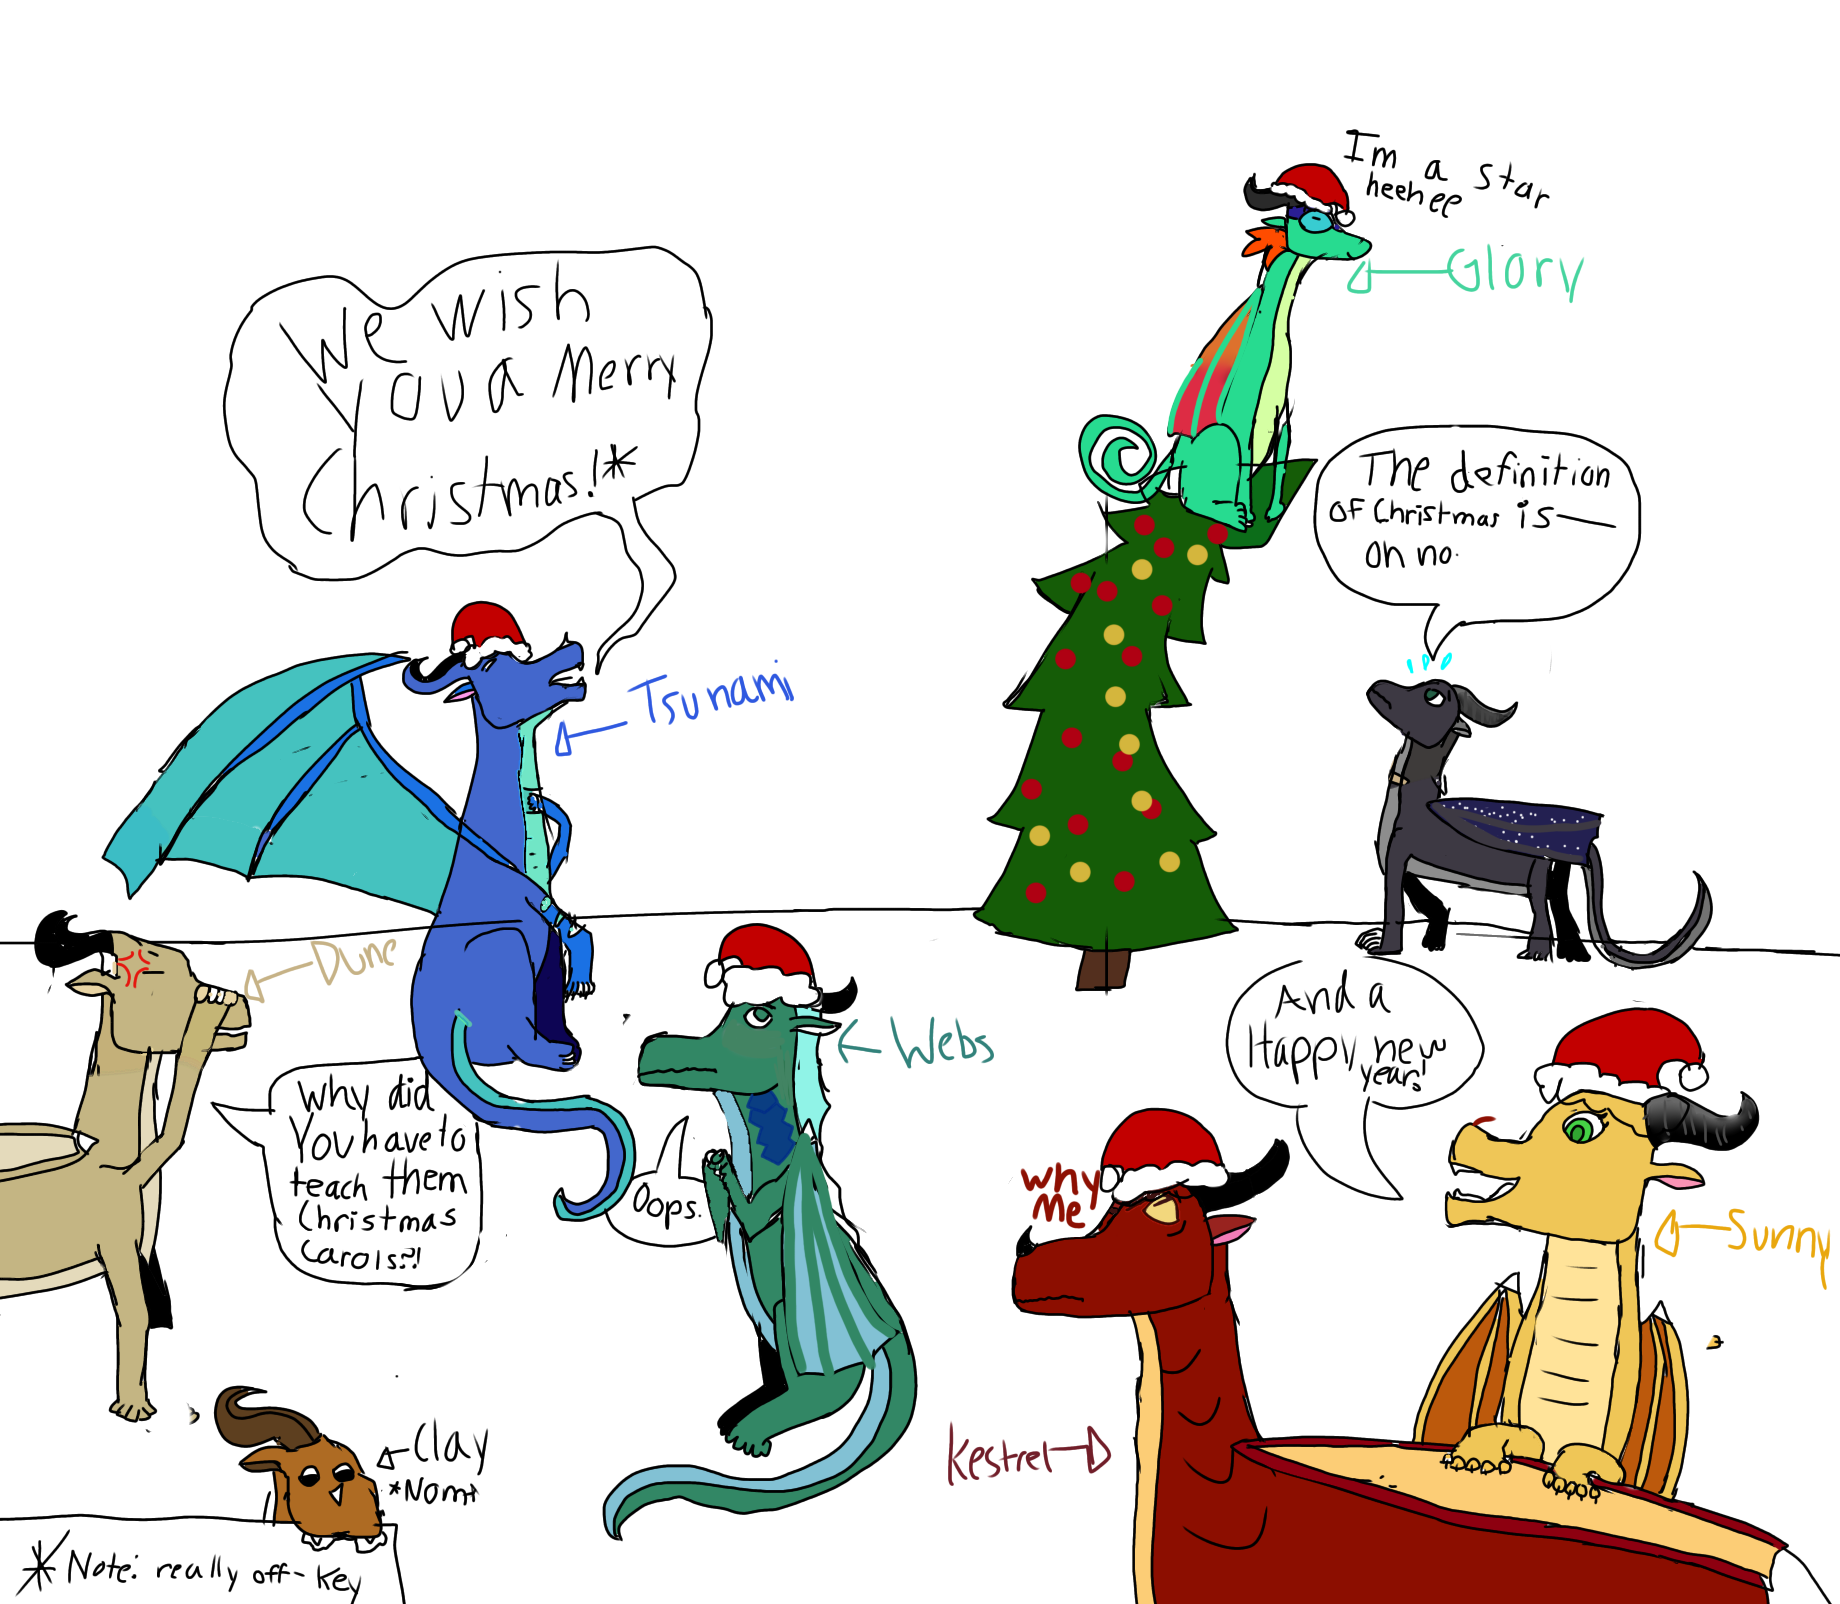 Im a star
heehee
Glory
We wish
you a Merry
Christmas!*
The definition
OF Christmas is—
oh no.
Tsunami
Dune
Webs
And a
Happy new
year!
Why did
You have to
teach them
Christmas
carols?!
Oops.
why
Me
Sunny
Kestrel
Clay
*Nom*
*Note: really off-key